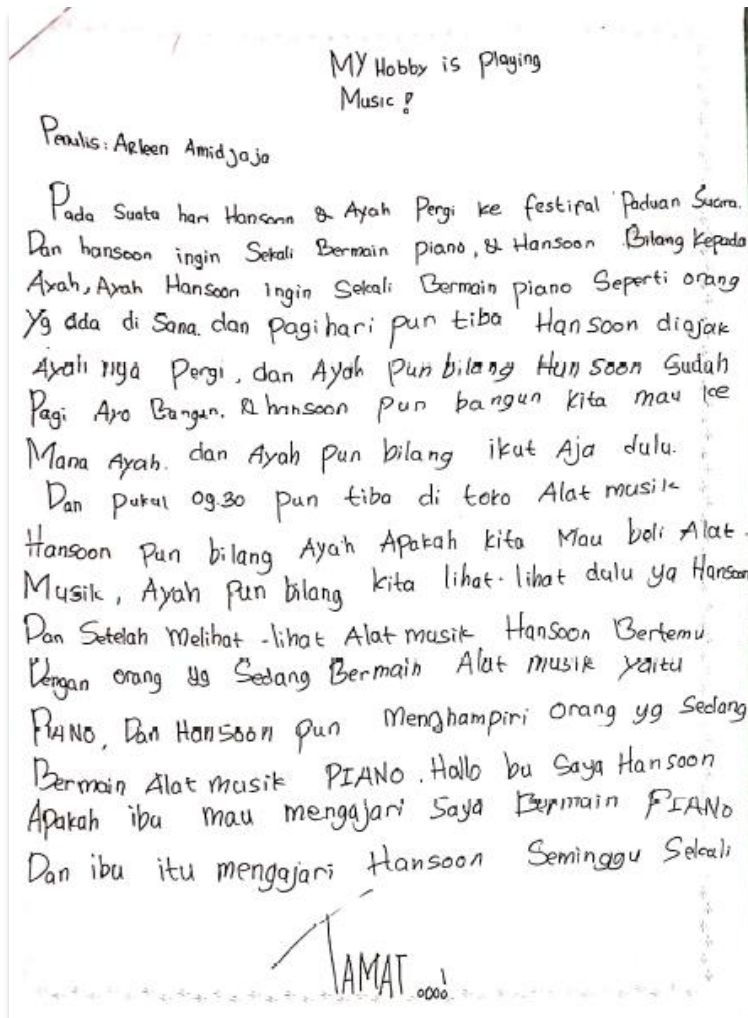 MY Hobby is Playing
Music !
Penulis: Arleen Amidjaja
Pada Suata hari Hansoon & Ayah Pergi ke festipal Paduan Suara.
Dan hansoon ingin Sekali Bermain piano, & Hansoon Bilang Kepada
Ayah, Ayah Hansoon Ingin Sekali Bermain piano Seperti orang
Yg ada di Sana. dan Pagi hari pun tiba Han soon diajak
Ayah nya Pergi, dan Ayah Pun bilang Hun soon Sudah
Pagi Ayo Bangun. & hansoon pun bangun kita mau ke
Mana Ayah. dan Ayah pun bilang ikut Aja dulu.
Dan pukul 09.30 pun tiba di toko Alat musik
Hansoon Pun bilang Ayah Apakah kita Mau beli Alat.
Musik, Ayah Pun bilang kita lihat-lihat dulu ya Hansoon
Dan Setelah Melihat-lihat Alat musik Hansoon Bertemu
Dengan orang yg Sedang Bermain Alat musik yaitu
PIANO, Dan Hansoon pun Menghampiri orang yg Sedang
Bermain Alat musik PIANO. Hallo bu Saya Hansoon
Apakah ibu mau mengajari Saya Bermain PIANO
Dan ibu itu mengajari Hansoon Seminggu Sekali
TAMAT....!